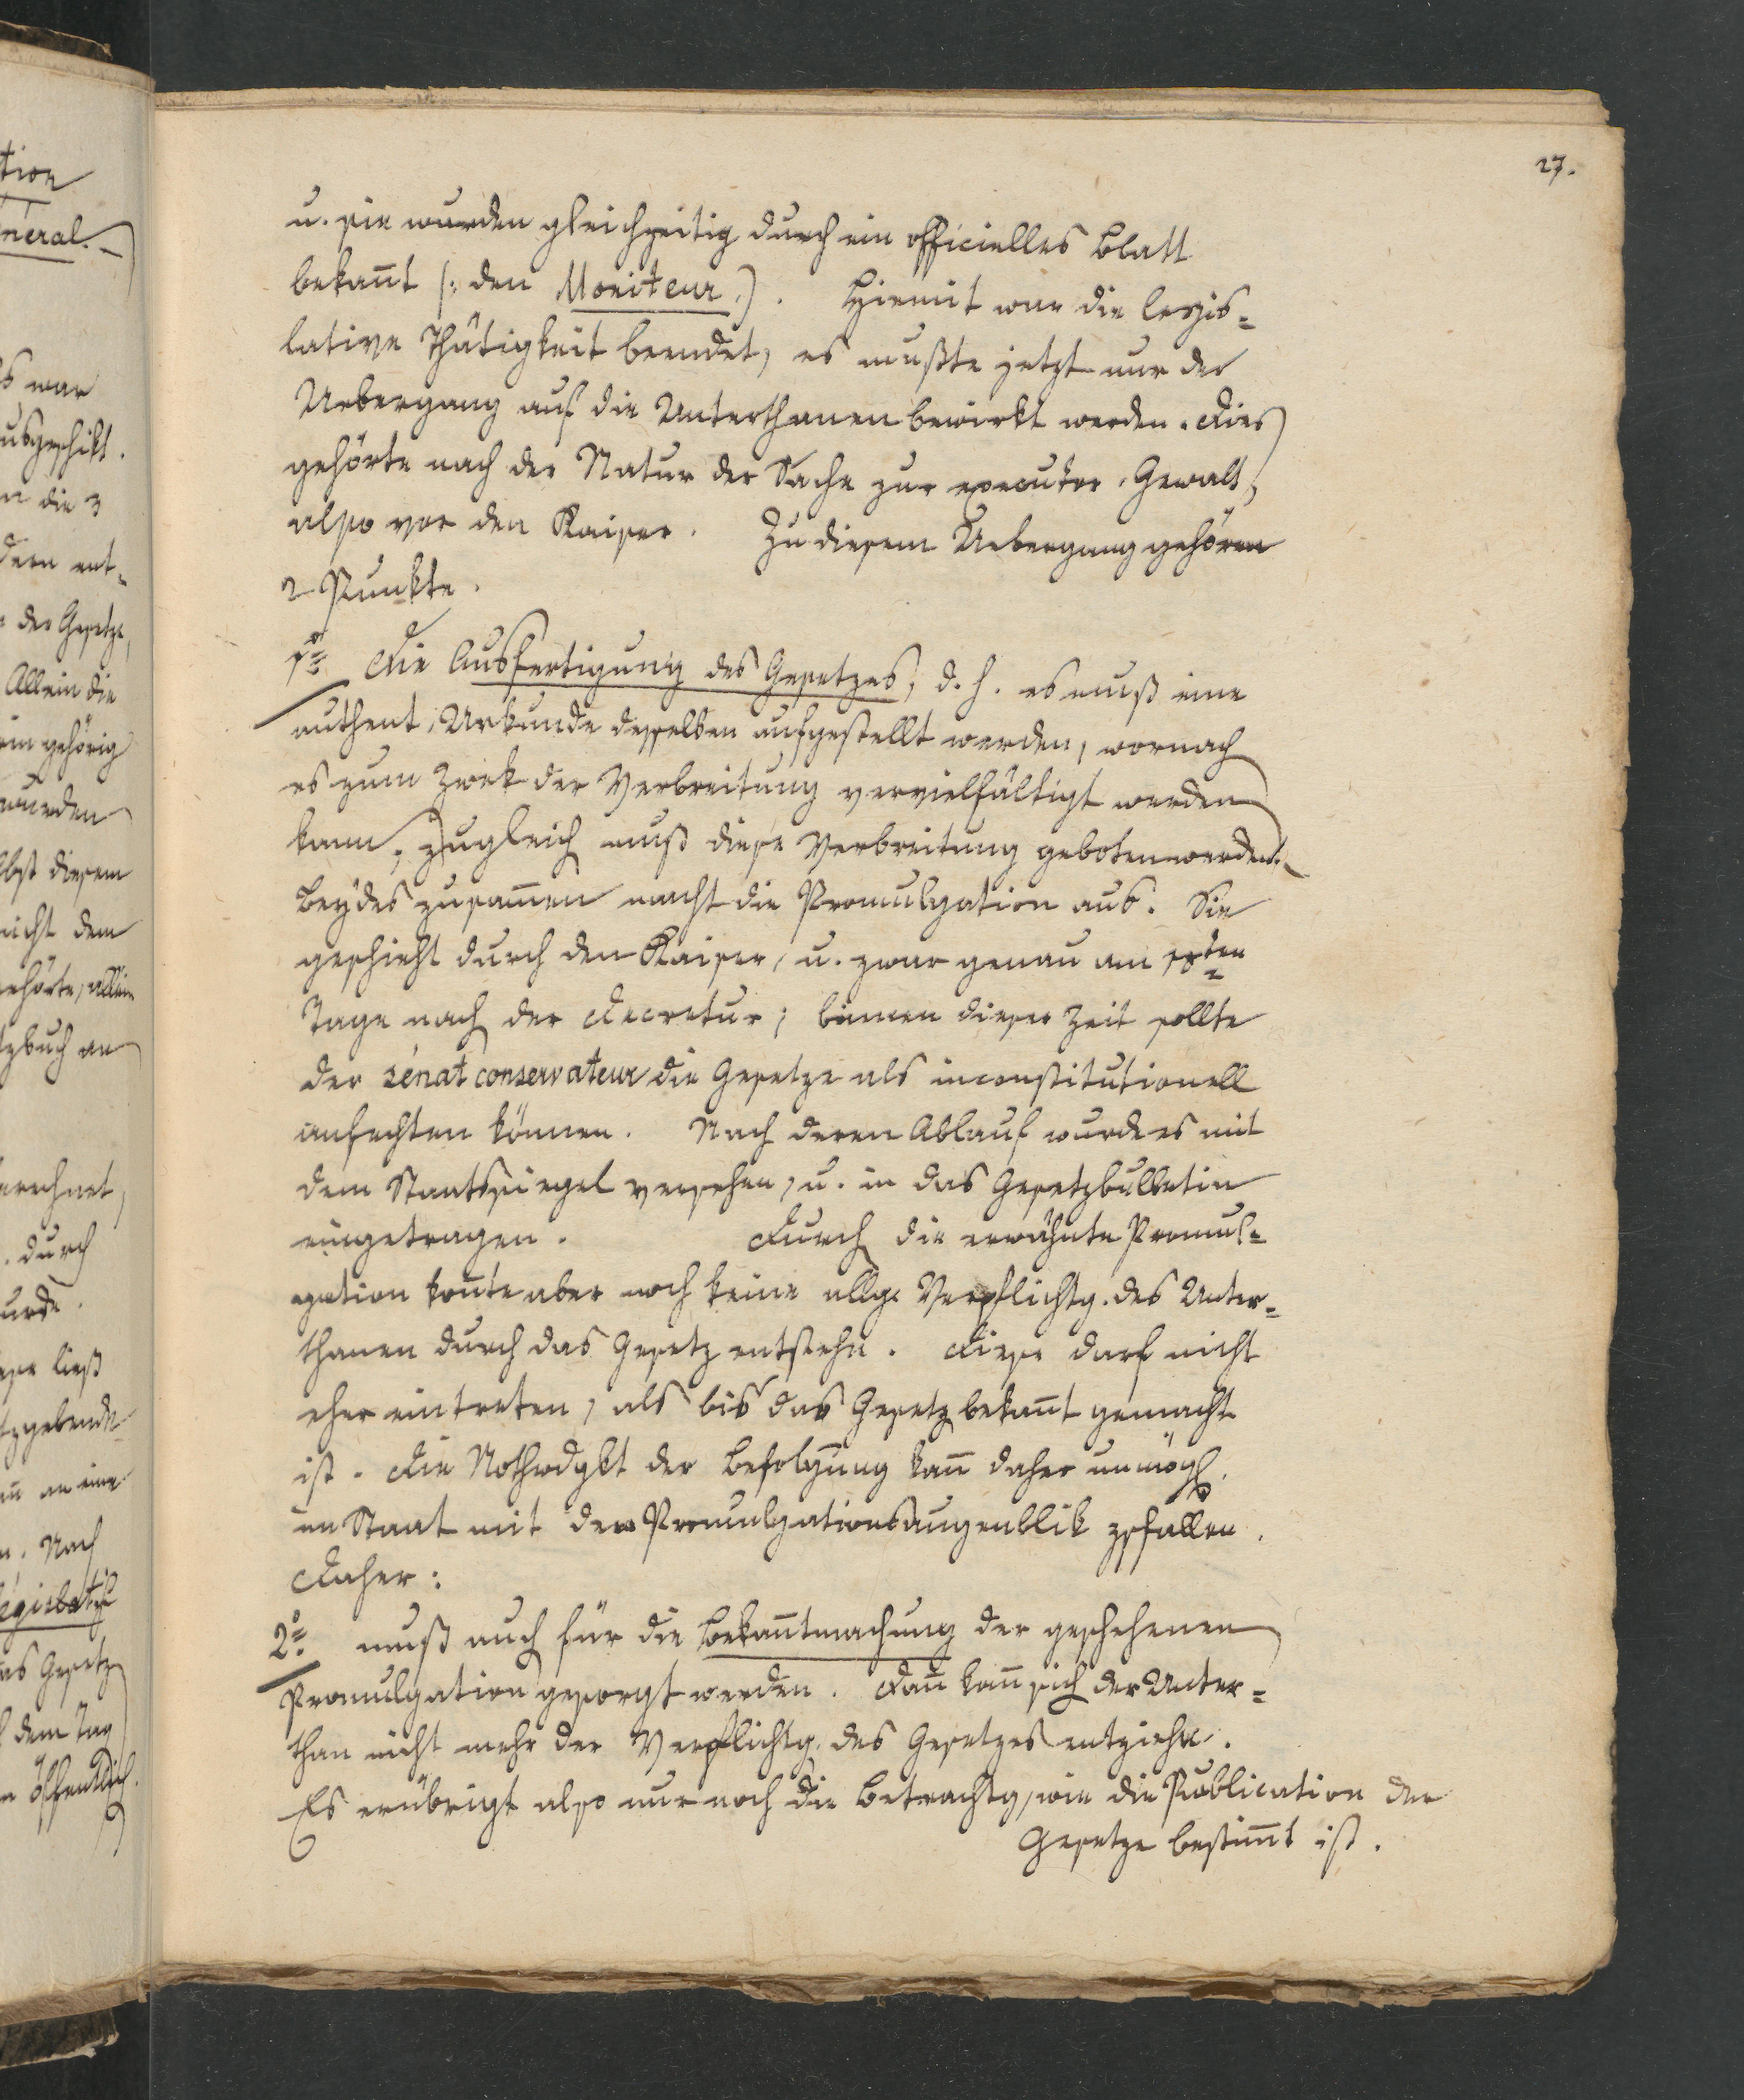 27.
u. sie wurden gleichzeitig durch ein officielles Blatt
bekan̄t (: den Moniteur.). Hiemit war die legis=
lative Thätigkeit beendet, es mußte jetzt nur der
Uebergang auf die Unterthanen bewirkt werden. Dies
gehörte nach der Natur der Sache zur executor. Gewalt,
also vor den Kaiser. Zu diesem Uebergang gehören
2 Punkte.
1o Die Ausfertigung des Gesetzes, d. h. es muß eine
authent. Urkunde desselben aufgestellt werden, wornach
es zum Zwek der Verbreitung vervielfältigt werden
kann. Zugleich muß diese Verbreitung geboten werden.
Beydes zusam̄en macht die Promulgation aus. Sie
geschieht durch den Kaiser, u. zwar genau am 10ten
Tage nach der Decretur; binnen dieser Zeit sollte
der sénat conservateur die Gesetze als inconstitutionell
anfechten können. Nach deren Ablauf wurde es mit
dem Staatssiegel versehen, u. in das Gesetzbulletin
eingetragen. Durch die erwähnte Promul=
gation kon̄te aber noch keine allge Verpflichtg. des Unter=
thanen durch das Gesetz entstehn. Diese darf nicht
eher eintreten, als bis das Gesetz bekan̄t gemacht
ist. Die Nothwdgkt der Befolgung kan̄ daher unmögl.
im Staat mit dem Promulgationsaugenblik zsfallen.
Daher:
2o muß auch für die Bekan̄tmachung der geschehenen
Promulgation gesorgt werden. Dan̄ kan̄ sich der Unter=
than nicht mehr der Verpflichtg. des Gesetzes entziehn.
Es erübrigt also nur noch die Betrachtg, wie die Publication der
Gesetze bestim̄t ist.
tion
néral.
s war
ausgeschikt.
n die 3
dern ent=
der Gesetze,
Allein die
ein gehörig
wurden
lbst diesem
nicht dem
gehörte, allein
tzbuch an
erechnet,
. durch
urde.
ese ließ
tzgebende
an̄ an eine
n. Nach
législatif
as Gesetz
dem Tag
n öffentlich.